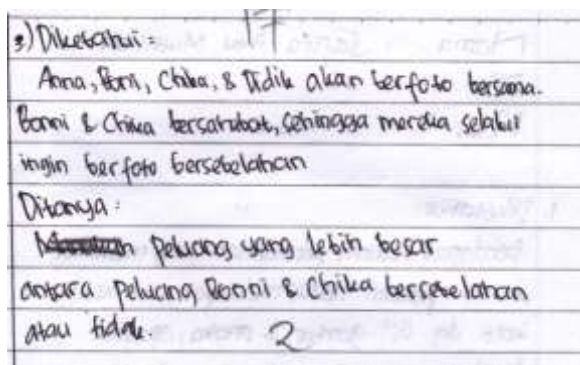 17
3) Diketahui :
Anna, Bonni, Chika, & Didik akan berfoto bersama.
Bonni & Chika bersahabat, sehingga mereka selalu
ingin berfoto bersebelahan
Ditanya :
peluang yang lebih besar
antara peluang Bonni & Chika bersebelahan
atau tidak
2